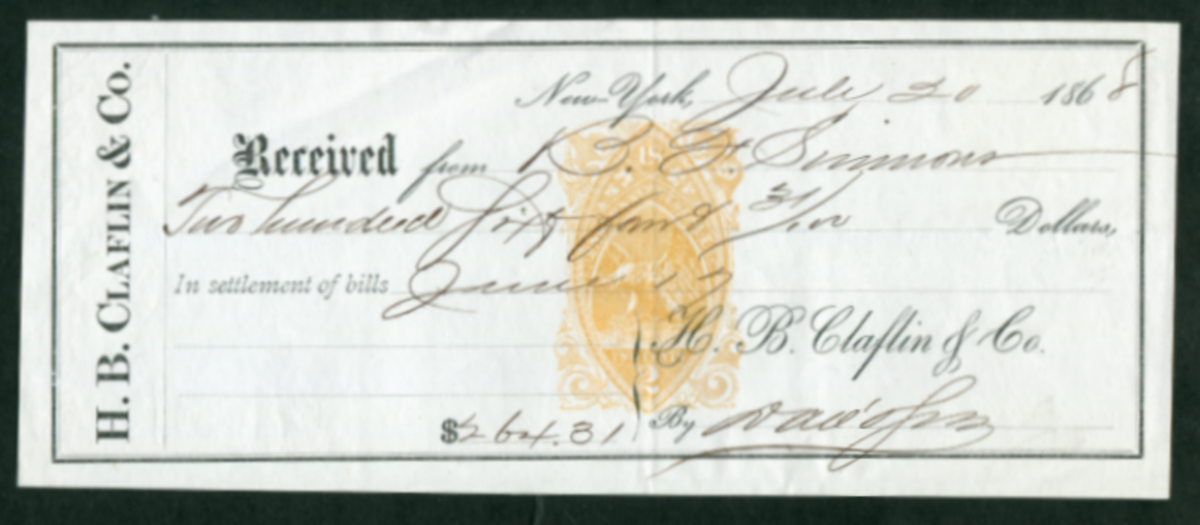 H. B. CLAFLIN & CO.
New York, July 30 1868
Received from R. F. Simmons
Two hundred Sixty four & 31/100 Dollars,
In settlement of bills June 17
H. B. Claflin & Co.
$264.31 By